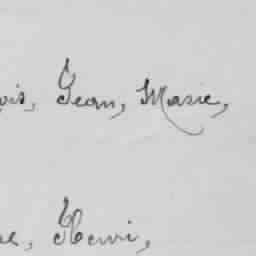 ois, Jean, Marie,
se, Henri,